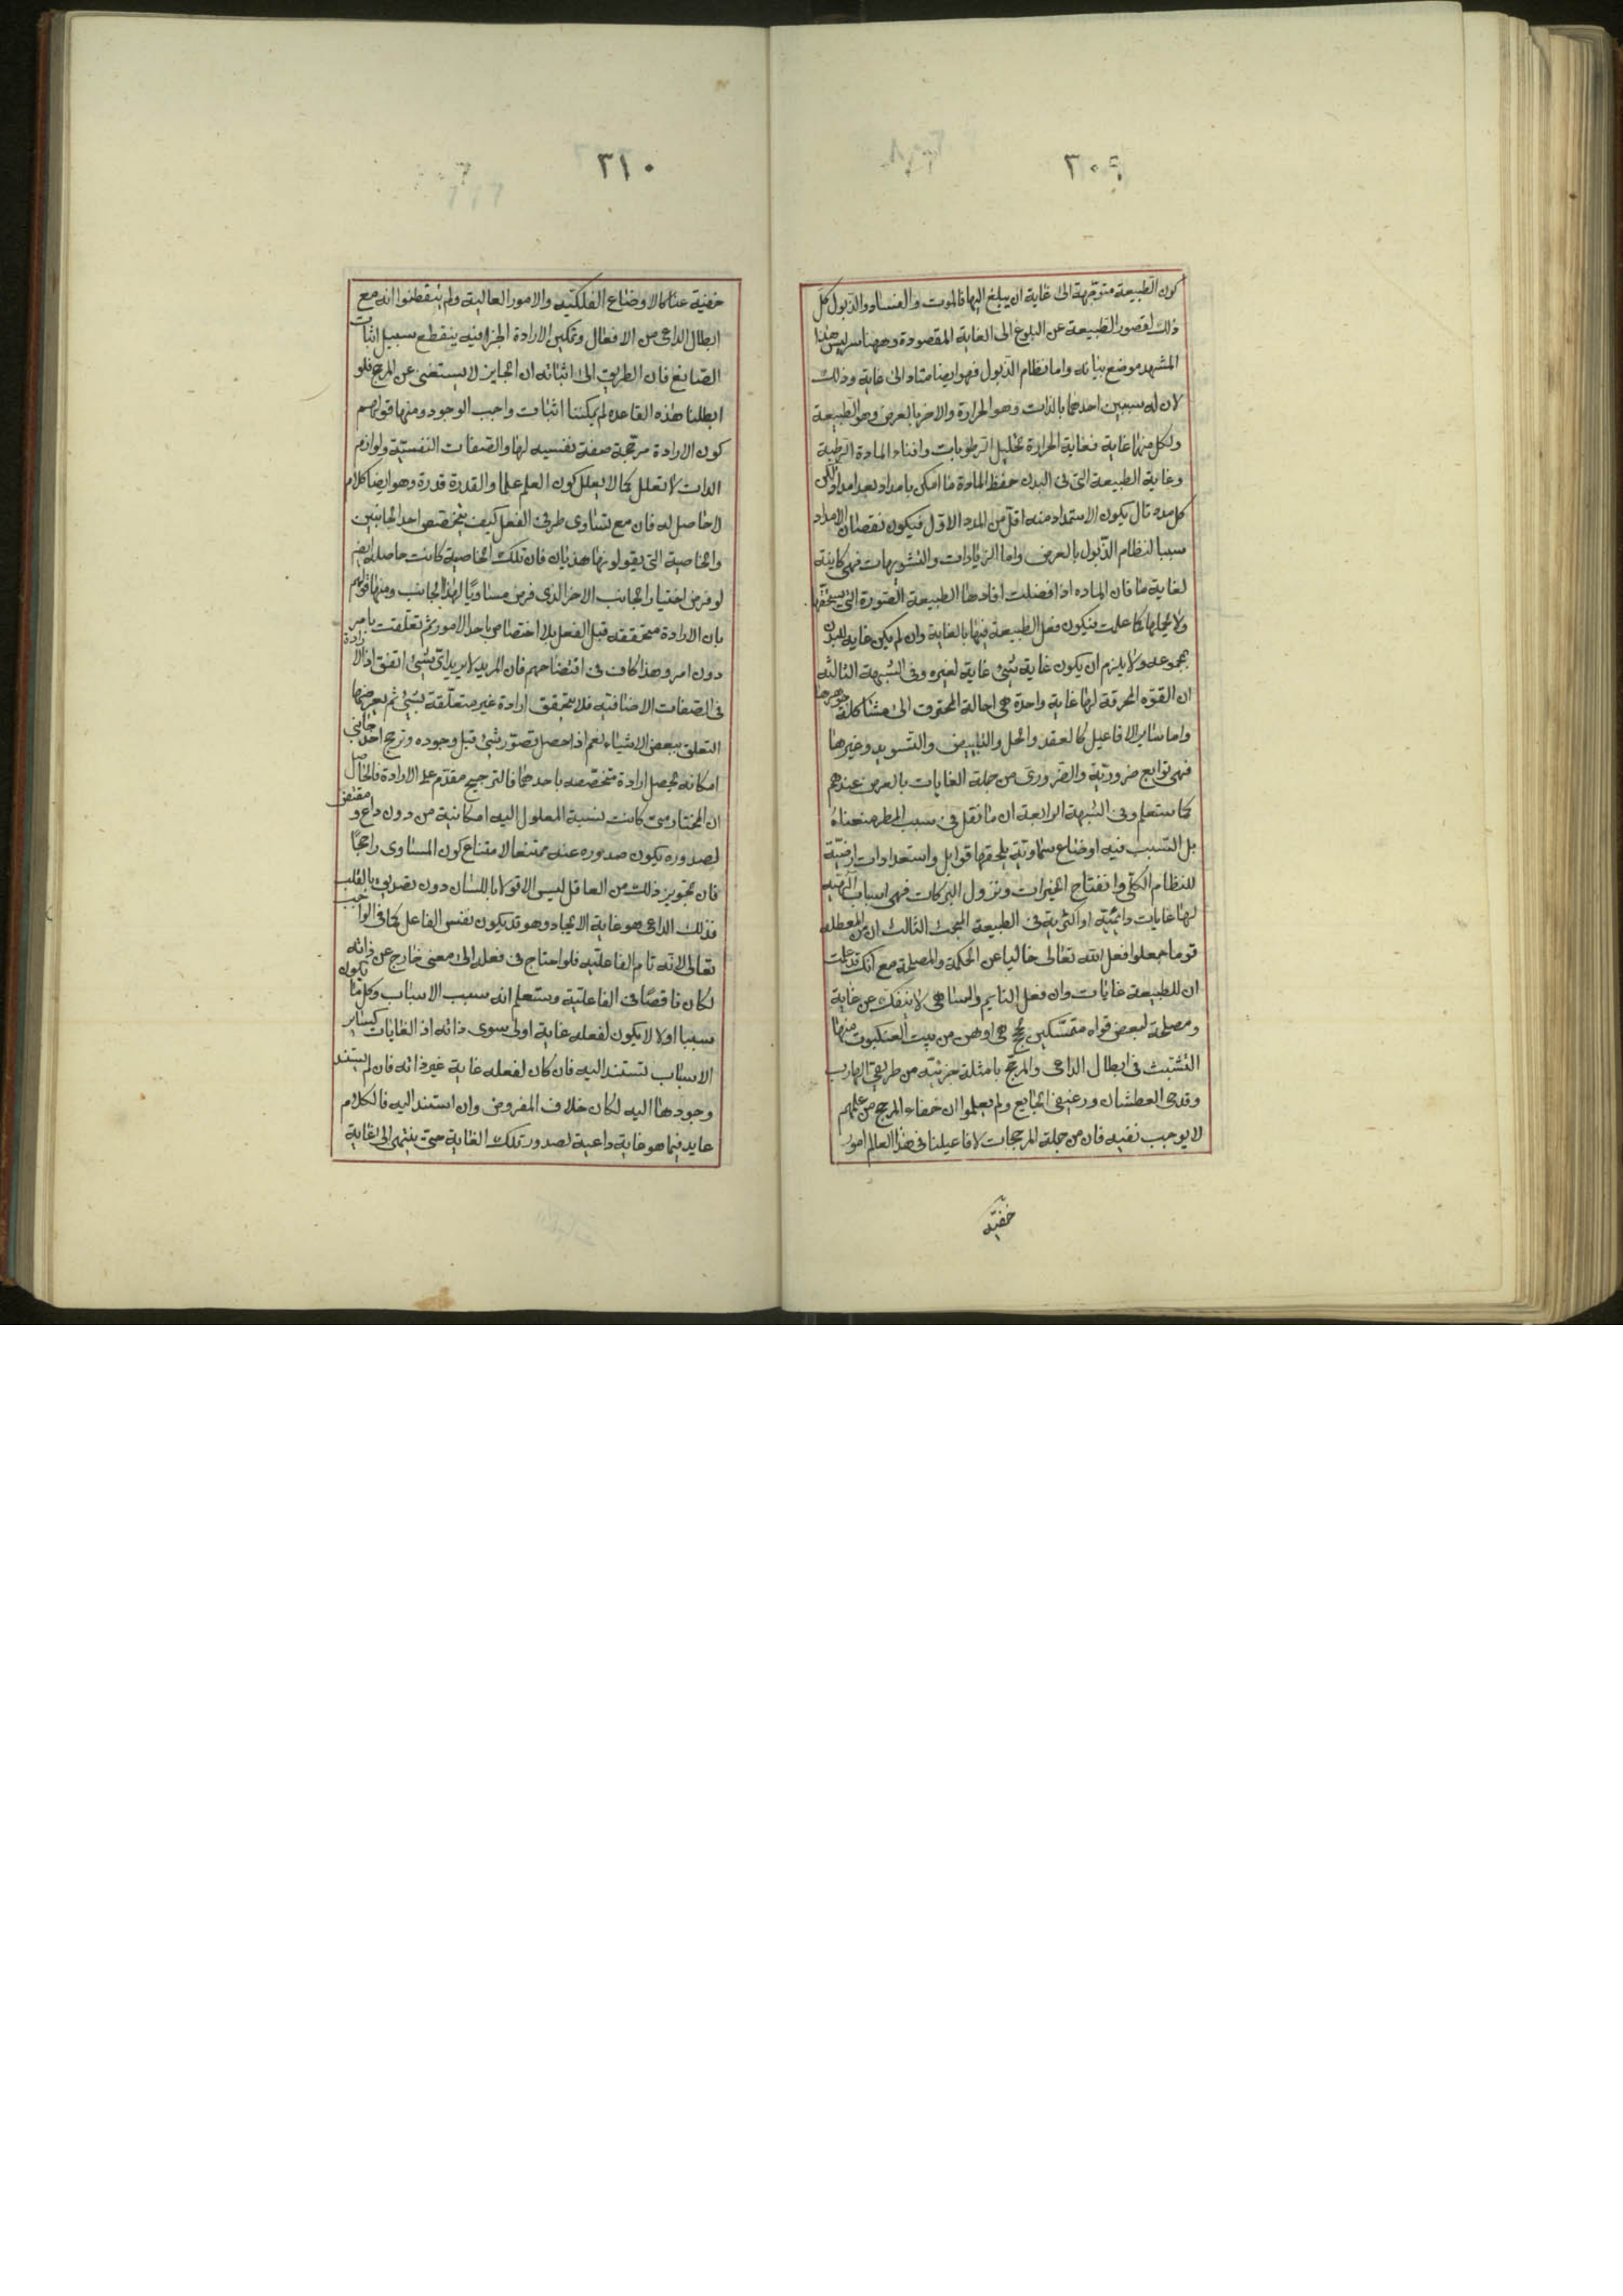 ٣٠٩
كون الطبيعة متوجهة الى غاية ان يبلغ اليها فالموت والفساد والذبول كل
ذلك لقصور الطبيعة عن البلوغ الى الغاية المقصودة وههنا سر ليس هذا
المشهد موضع بيانه واما نظام الذبول فهو ايضا متاد الى غاية وذلك
لان له سببين احدهما بالذات وهو الحرارة والاخر بالعرض وهو الطبيعة
ولكل منها غاية فغاية الحرارة تحليل الرطوبات وافناء المادة الرطبة
وغاية الطبيعة التى فى البدن حفظ المادة ما امكن بامداد بعد امداد ولكن
كل مدد تال يكون الاستمداد منه اقل من المدد الاول فيكون نقصان الامداد
سببا لنظام الذبول بالعرض واما الزيادات والتشويهات فهى كاينة
لغاية ما فان الماده اذا فضلت افادها الطبيعة الصورة التى يستحقها
ولا يحملها كما علمت فيكون فعل الطبيعة فيها بالغاية وان لم يكن غاية للبدن
بمجموعه ولا يلزم ان يكون غاية شئ غاية لغيره وفى الشبهة الثالثة
ان القوه المحرقة لها غاية واحدة هى احالة المحترق الى مشاكلة جوهرها
واما ساير الافاعيل كالعقد والحل والتبييض والتسويد وغيرها
فهى توابع ضرورية والضرورى من جملة الغايات بالعرض عندهم
كما ستعلم وفى الشبهة الرابعة ان ما نقل فى سبب المطر منعناه
بل السبب فيه اوضاع سماوية يلحقها قوابل واستعدادات ارضية
للنظام الكلى وانفتاح الخيرات ونزول البركات فهى اسباب آلهية
لها غايات دائمية او اكثرية فى الطبيعة المبحث الثالث ان من المعطلة
قوما جعلوا فعل الله تعالى خاليا عن الحكمة والمصلحة مع انك قد علمت
ان للطبيعة غايات وان فعل النايم والساهى لا ينفك عن غاية
ومصلحة لبعض قواه متمسكين بحجج هى اوهن من بيت العنكبوت منها
التشبث فى ابطال الداعى والمرجح بامثلة جزئية من طريقى الهارب
وقدحى العطشان ورغيفى الجايع ولم يعلموا ان خفاء المرجح عن علمهم
لا يوجب نفيه فان من جملة المرجحات لافاعيلنا فى هذا العالم امور
خفيّة
٣١٠
خفية عنا كالاوضاع الفلكتيه والامور العالية ولم يتفطنوا انه مع
ابطال الداعى من الافعال وتمكين الارادة الجزافيه ينقطع سبيل اثبات
الصانع فان الطريق الى اثباته ان الجايز لا يستغنى عن المرجح فلو
ابطلنا هذه القاعده لم يمكننا اثبات واجب الوجود ومنها قولهم
كون الارادة مرجحة صفة نفسيه لها والصفات النفسيّة ولوازم
الذات لا تعلل كما لا يعلل كون العلم علما والقدرة قدرة وهو ايضا كلام
لا حاصل له فان مع تساوى طرفى الفعل كيف يتخصص احد الجانبين
والخاصية التى يقولونها هذيان فان تلك الخاصية كانت حاصله ايضا
لو فرض اختيار الجانب الاخر الذى فرض مساويًا لهذا الجانب ومنها قولهم
بان الارادة متحققه قبل الفعل بلا اختصاص باحد الامور ثم تعلقت بامر
دون امر وهذا كاف فى افتضاحهم فان المريد لا يريد اى شئ اتفق اذ الارادة
فى الصفات الاضافيه فلا يتحقق ارادة غير متعلقة بشئ ثم يعرضها
التعلق ببعض الاشياء نعم اذا حصل تصور شئ قبل وجوده وترجح احد جانبى
امكانه يحصل ارادة متخصصه باحدهما فالترجيح مقدم على الارادة فالحاصل
ان المختار متى كانت نسبة المعلول اليه امكانية من دون داع و مقتض
لصدوره يكون صدوره عنه ممتنعا لامتناع كون المساوى راجحًا
فان تجويز ذلك من العاقل ليس الا قولا باللسان دون تصديق بالقلب
فذلك الداعى هو غاية الايجاد وهو قد يكون نفس الفاعل كما فى الواجب
تعالى لانه تام الفاعليّه فلو احتاج فى فعله الى معنى خارج عن ذاته
لكان ناقصًا فى الفاعلية وستعلم انه سبب الاسباب وكل ما يكون
سببا اولا لا يكون لفعله غاية اولى سوى ذاته اذ الغايات كساير
الاسباب تستند اليه فان كان لفعله غاية غير ذاته فان لم يستند
وجودها اليه لكان خلاف المفروض وان استند اليه فالكلام
عايد فيما هو غاية داعية لصدور تلك الغاية حتى ينتهى الى غاية